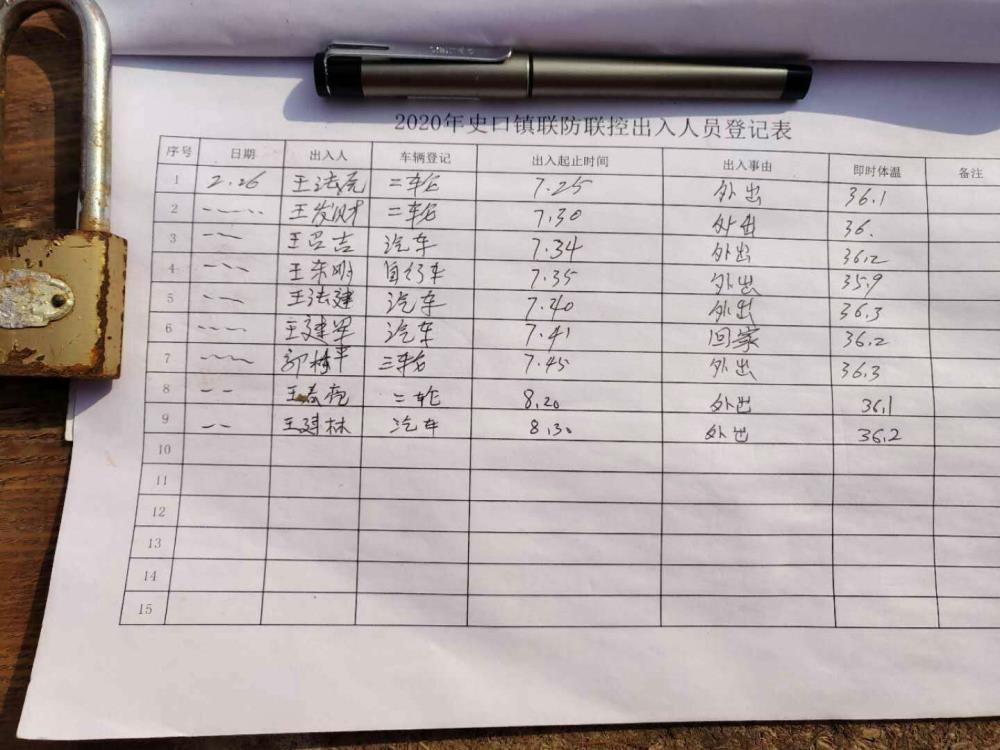 2020年史口镇联防联控出入人员登记表
序号 日期 出入人 车辆登记 出入起止时间 出入事由 即时体温 备注
1 2.26 王法亮 二轮 7.25 外出 36.1
2 王发财 二轮 7.30 外出 36.
3 王召吉 汽车 7.34 外出 36.2
4 王东明 自行车 7.35 外出 35.9
5 王法建 汽车 7.40 外出 36.3
6 王建军 汽车 7.41 回家 36.2
7 三轮 7.45 外出 36.3
8 二轮 8.20 外出 36.1
9 王建林 汽车 8.30 外出 36.2
10
11
12
13
14
15